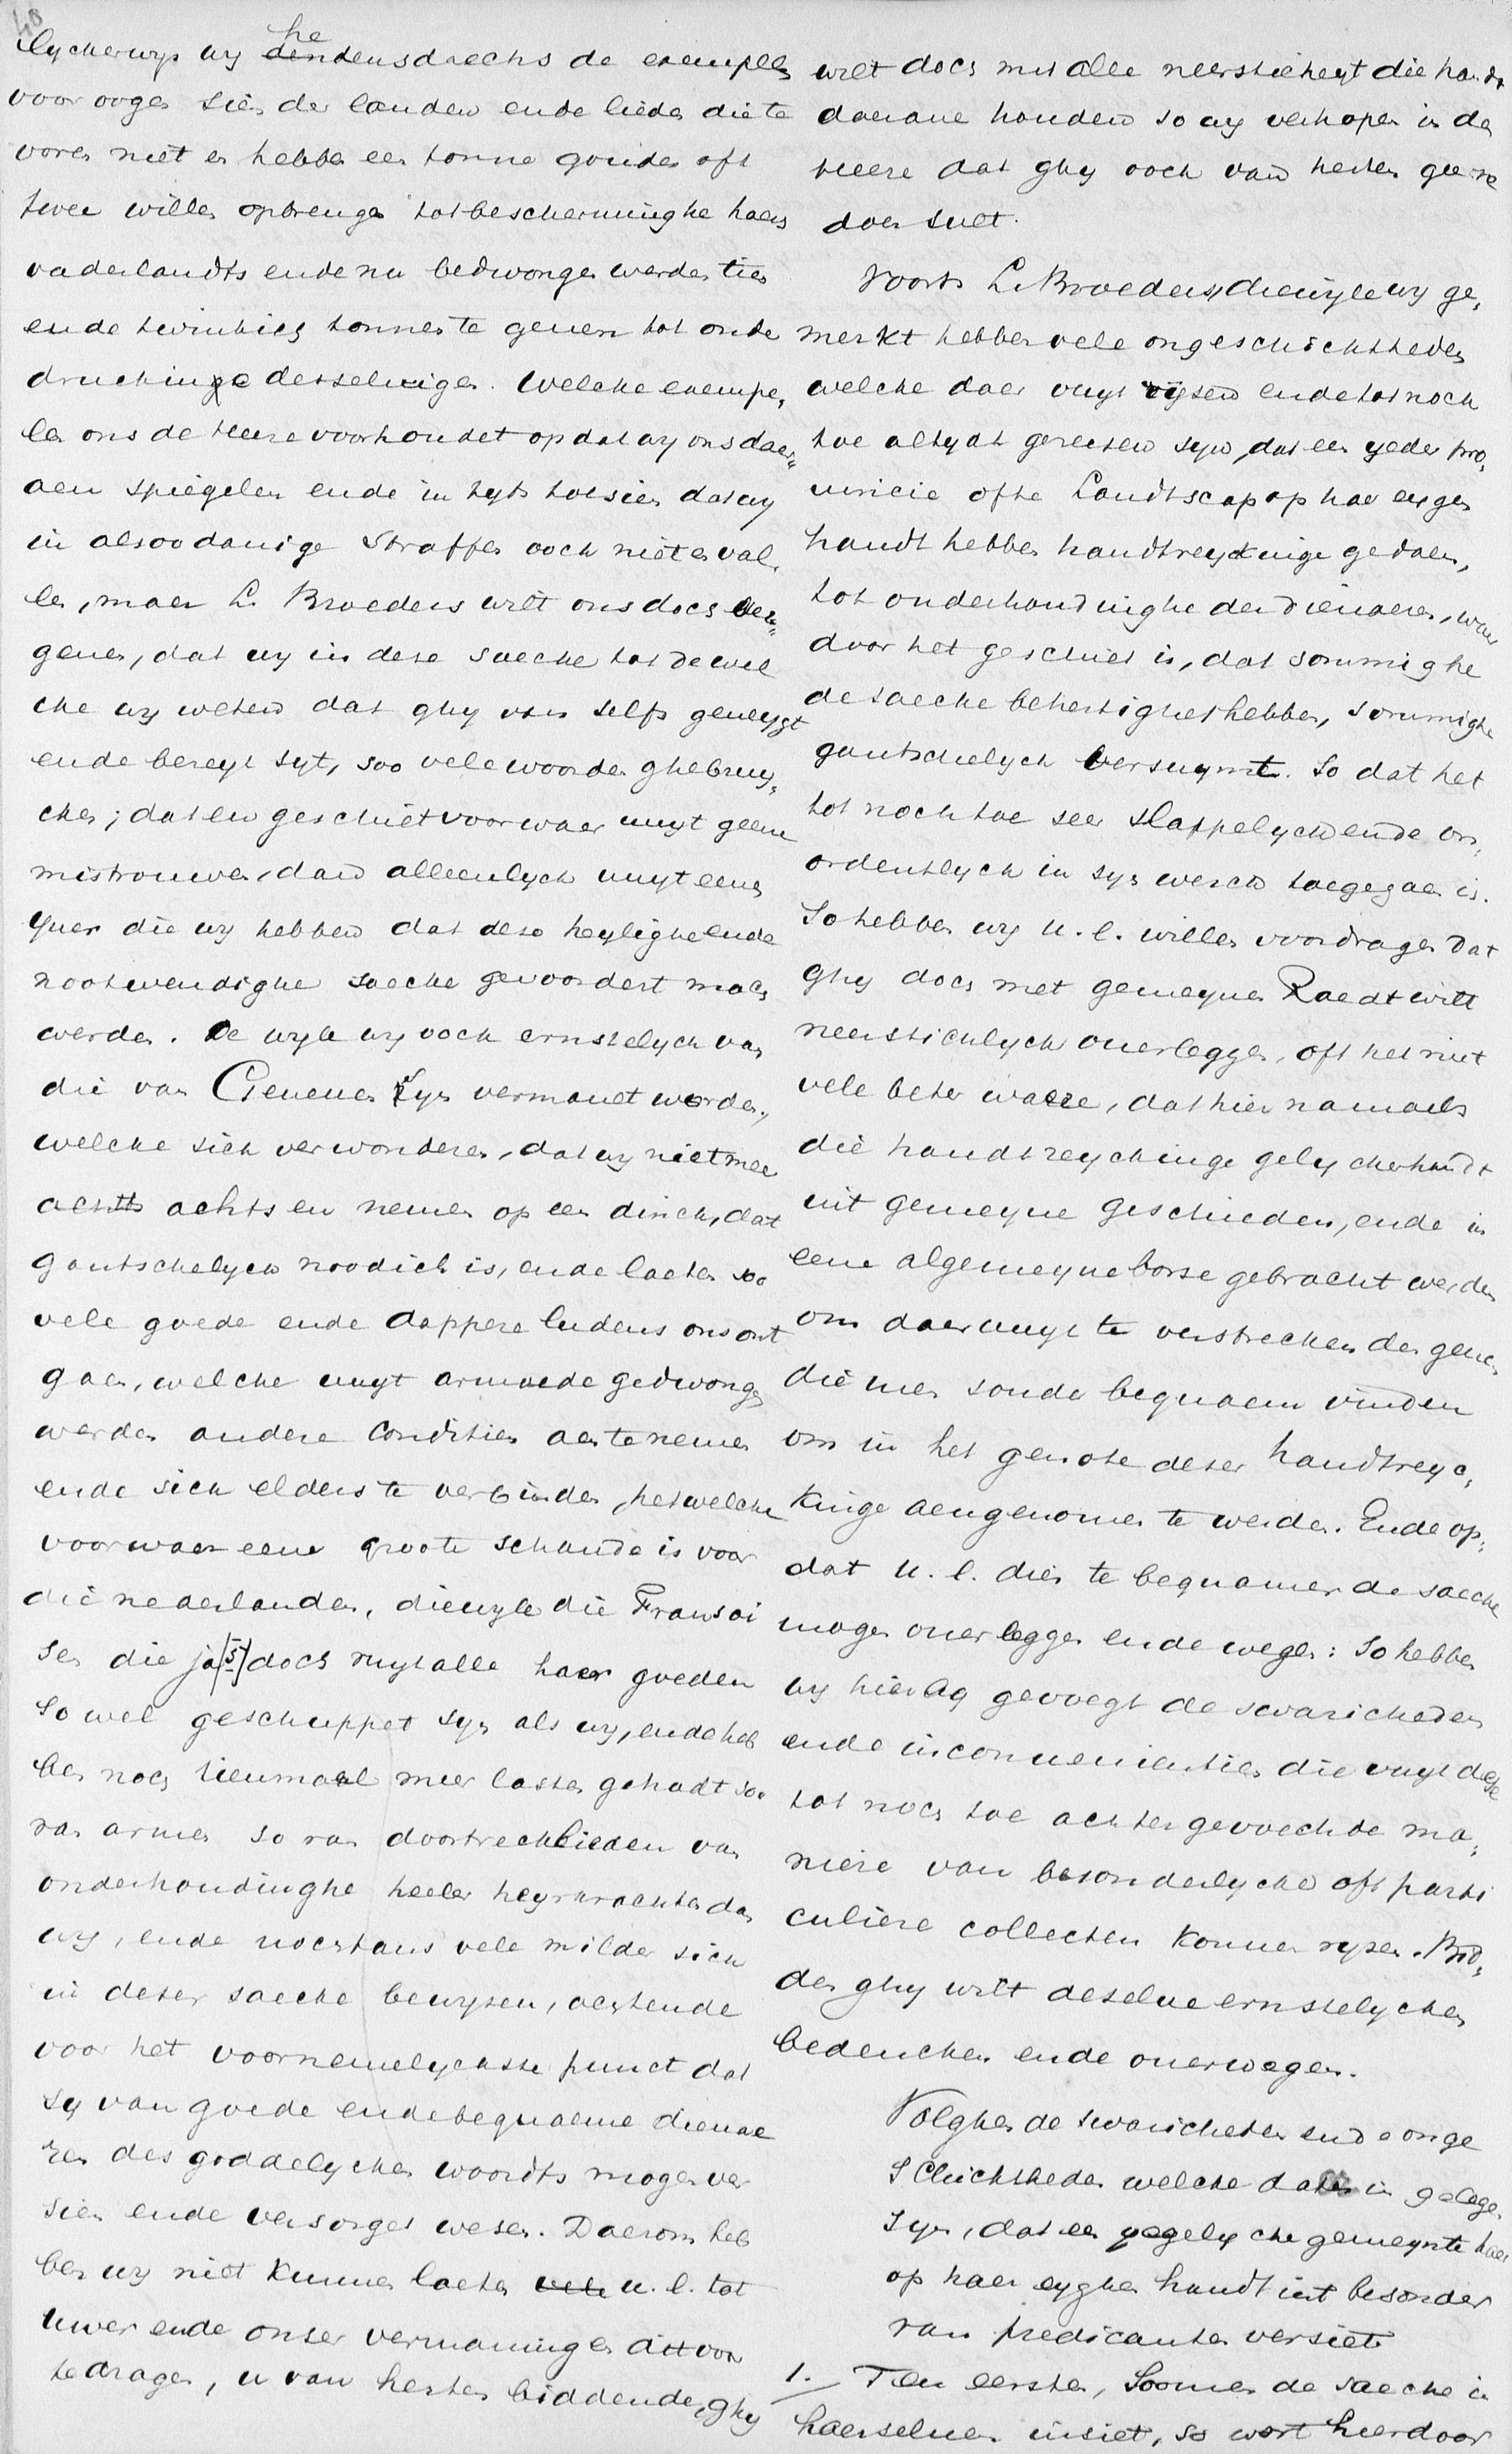 40
lyckerwys wy he dendensdaechs de exempels
voor ooge sien der landen ende lieden die te
voren niet en hebben een tonne gouds oft
twee willen opbrenge tot bescherminghe haers
vaderlandts ende nu bedwongen werden tien
ende twintich tonnen te geven tot onder
druckinge desselvigen. Welcke exempe,
len ons de Heere voorhoudet op dat wy ons daer„
aen spiegelen ende in tyts toesien dat wy
in alsoodanige straffen ooch niet en val
len, maer L. Broeders wilt ons doch ver„
geven, dat wy in dese saecke tot de wel
cke wy weten dat ghy van selfs geneygt
ende bereyt syt, soo vele woorden ghebruy„
cken; dat en geschiet voorwaer uuyt geen
mistrouwen, dan alleenlych uuyt eenen
yver die wy hebben dat dese heylighe ende
nootwendighe saecke gevoordert mach
werden. De wyle wy ooch ernstelych van
die van Geneven syn vermanet worden,
welcke sich verwonderen, dat wy niet meer
achts en nemen op een dinck, dat
gantschelyck noodich is, ende laeten soo
vele goede ende dappere ludens ons ont
gaen, welche uuyt armoede gedwongen
werden andere conditien aen te nemen
ende sich elders te verbinden, hetwelcke
voorwaer eene groote schande is voor
die nederlanden, diewyle die Fransoi
sen die ja[s] doch uuyt alle haer goeden
so wel geschuppet syn als wy, ende heb
ben noch tienmael meer lasten gehadt so
van armen so van doortrecklieden van
onderhoudinghe heeler heyrkrachten dan
wy, ende nochtans vele milder sich
in deser saecke bewysen, achtende
voor het voornemelyckste punct dat
sy van goede ende bequaeme diena
ren des goddelycken woordts mogen ver
sien ende versorget wesen. Daerom heb
ben wy niet kunnen laeten u. l. tot
uwer ende onser vermaninge dit voor
te dragen, u van herten biddende, ghy
wilt doch met alle neersticheyt die handt
daerane houden so wy verhopen in den
heere dat ghy ooch van herten geerne
doen sult.
Voorts L. Broeders, diewyle wy ge,
merkt hebben vele ongeschichtheden
welche daer uuyt rysen ende tot noch
toe altydt geresen syn, dat een yeder pro,
vincie ofte Landtscap op haer eygen
handt hebben handtreyckinge gedaen,
tot onderhoudinghe der dienaeren, waer
door het geschiet is, dat sommighe
de saecke behertighet hebben, sommighe
gantschelych versuymt. So dat het
tot noch toe seer slappelyck ende on,
ordentlych in syn werck toegegaen is.
So hebben wy u. l. willen voordragen dat
ghy doch met gemeynen Raedt wilt
neerstichlych overleggen, oft het niet
vele beter waere, dat hier namaels
die handtreychinge gelyckerhandt
int gemeyne geschieden, ende in
eene algemeyne borse gebracht werden
om daer uuyt te verstrecken den genen
die men soude bequaem vinden
om in het genote deser handtreyc,
kinge aengenomen te werden. Ende op„
dat u. l. dies te bequamer de saecke
mogen overleggen ende wegen: So hebben
wy hierby gevoegt de swaricheden
ende inconvenientien die uuyt dese
tot noch toe achtergevoechde ma„
niere van besonderlycke oft parti
culiere collecten konnen rysen. Bid„
den ghy wilt deselve ernstelycken
bedencken ende overwegen.
Volghen de swaricheden ende onge
schichtheden welcke daer in gelegen
syn, dat een yegelycke gemeynte haer
op haer eyghen handt int besonder
van predicanten versiet.
1. Ten eersten, Soomen de saecke in
haerselven insiet, so wort hierdoor